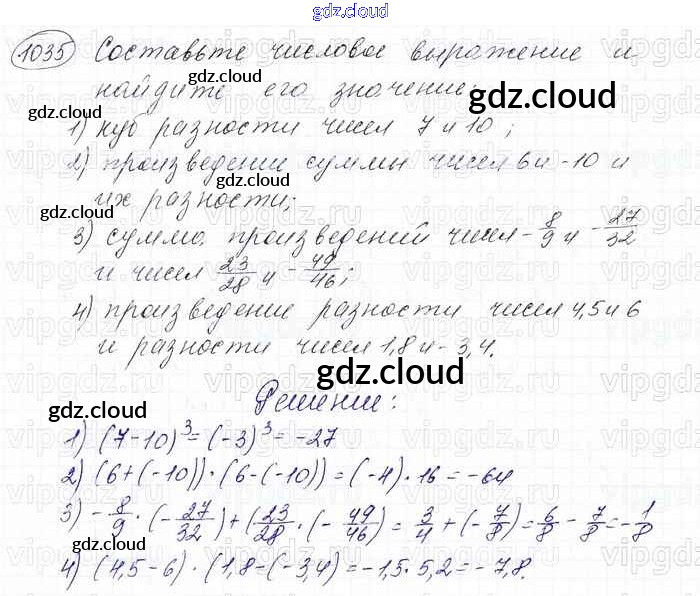 gdz.cloud
1035 Составьте числовое выражение и
найдите его значение:
gdz.cloud
gdz.cloud
1) куб разности чисел 7 и 10;
gdz.cloud
2) произведении суммы чисел 6 и -10 и
gdz.cloud
их разности;
gdz.cloud
3) сумма произведений чисел -8/9 и -27/32
и чисел 23/28 и -49/46;
4) произведение разности чисел 4,5 и 6
и разности чисел 1,8 и -3,4.
gdz.cloud
Решение:
gdz.cloud
1) (7-10)³=(-3)³=-27
2) (6+(-10))·(6-(-10))=(-4)·16=-64
3) -8/9·(-27/32)+(23/28·(-49/46)=3/4+(-7/8)=6/8-7/8=-1/8
gdz.cloud
gdz.cloud
4) (4,5-6)·(1,8-(-3,4)=-1,5·5,2=-7,8.
gdz.cloud